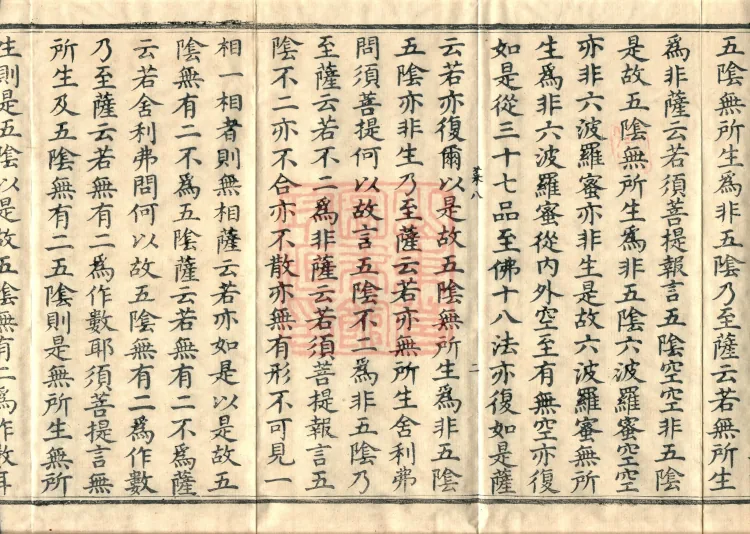 五陰無所生為非五陰乃至薩云若無所生
為非薩云若須菩提報言五陰空空非五陰
是故五陰無所生為非五陰六波羅蜜空空
亦非六波羅蜜亦非生是故六波羅蜜無所
生為非六波羅蜜從內外空至有無空亦復
如是從三十七品至佛十八法亦復如是薩
菜八 二
云若亦復爾以是故五陰無所生為非五陰
五陰亦非生乃至薩云若亦無所生舍利弗
問須菩提何以故言五陰不二為非五陰乃
至薩云若不二為非薩云若須菩提報言五
陰不二亦不合亦不散亦無有形不可見一
相一相者則無相薩云若亦如是以是故五
陰無有二不為五陰薩云若無有二不為薩
云若舍利弗問何以故五陰無有二為作數
乃至薩云若無有二為作數耶須菩提言無
所生及五陰無有二五陰則是無所生無所
生則是五陰以是故五陰無有二為作數耳